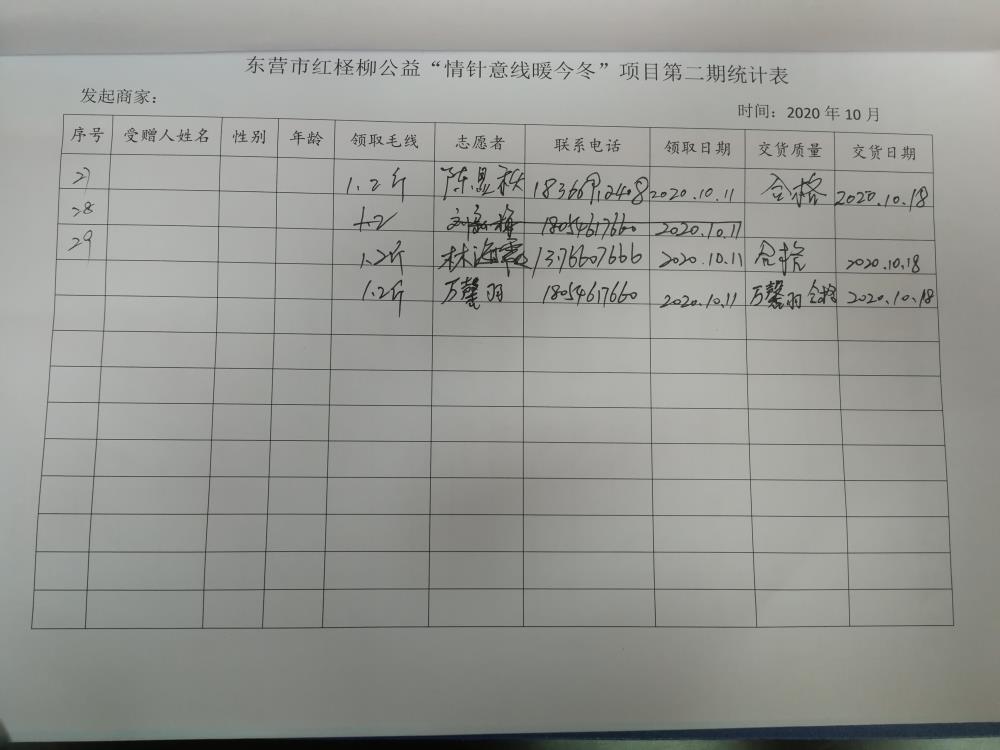 东营市红柽柳公益“情针意线暖今冬”项目第二期统计表
发起商家：
时间：2020 年 10 月
序号 受赠人姓名 性别 年龄 领取毛线 志愿者 联系电话 领取日期 交货质量 交货日期
27 1.2斤 陈显秋 2020.10.11 合格 2020.10.18
28 1.2 18054617660 2020.10.11
29 1.2斤 林海霞 13176607666 2020.10.11 合格 2020.10.18
1.2斤 万馨羽 18054617660 2020.10.11 万馨羽 合格 2020.10.18